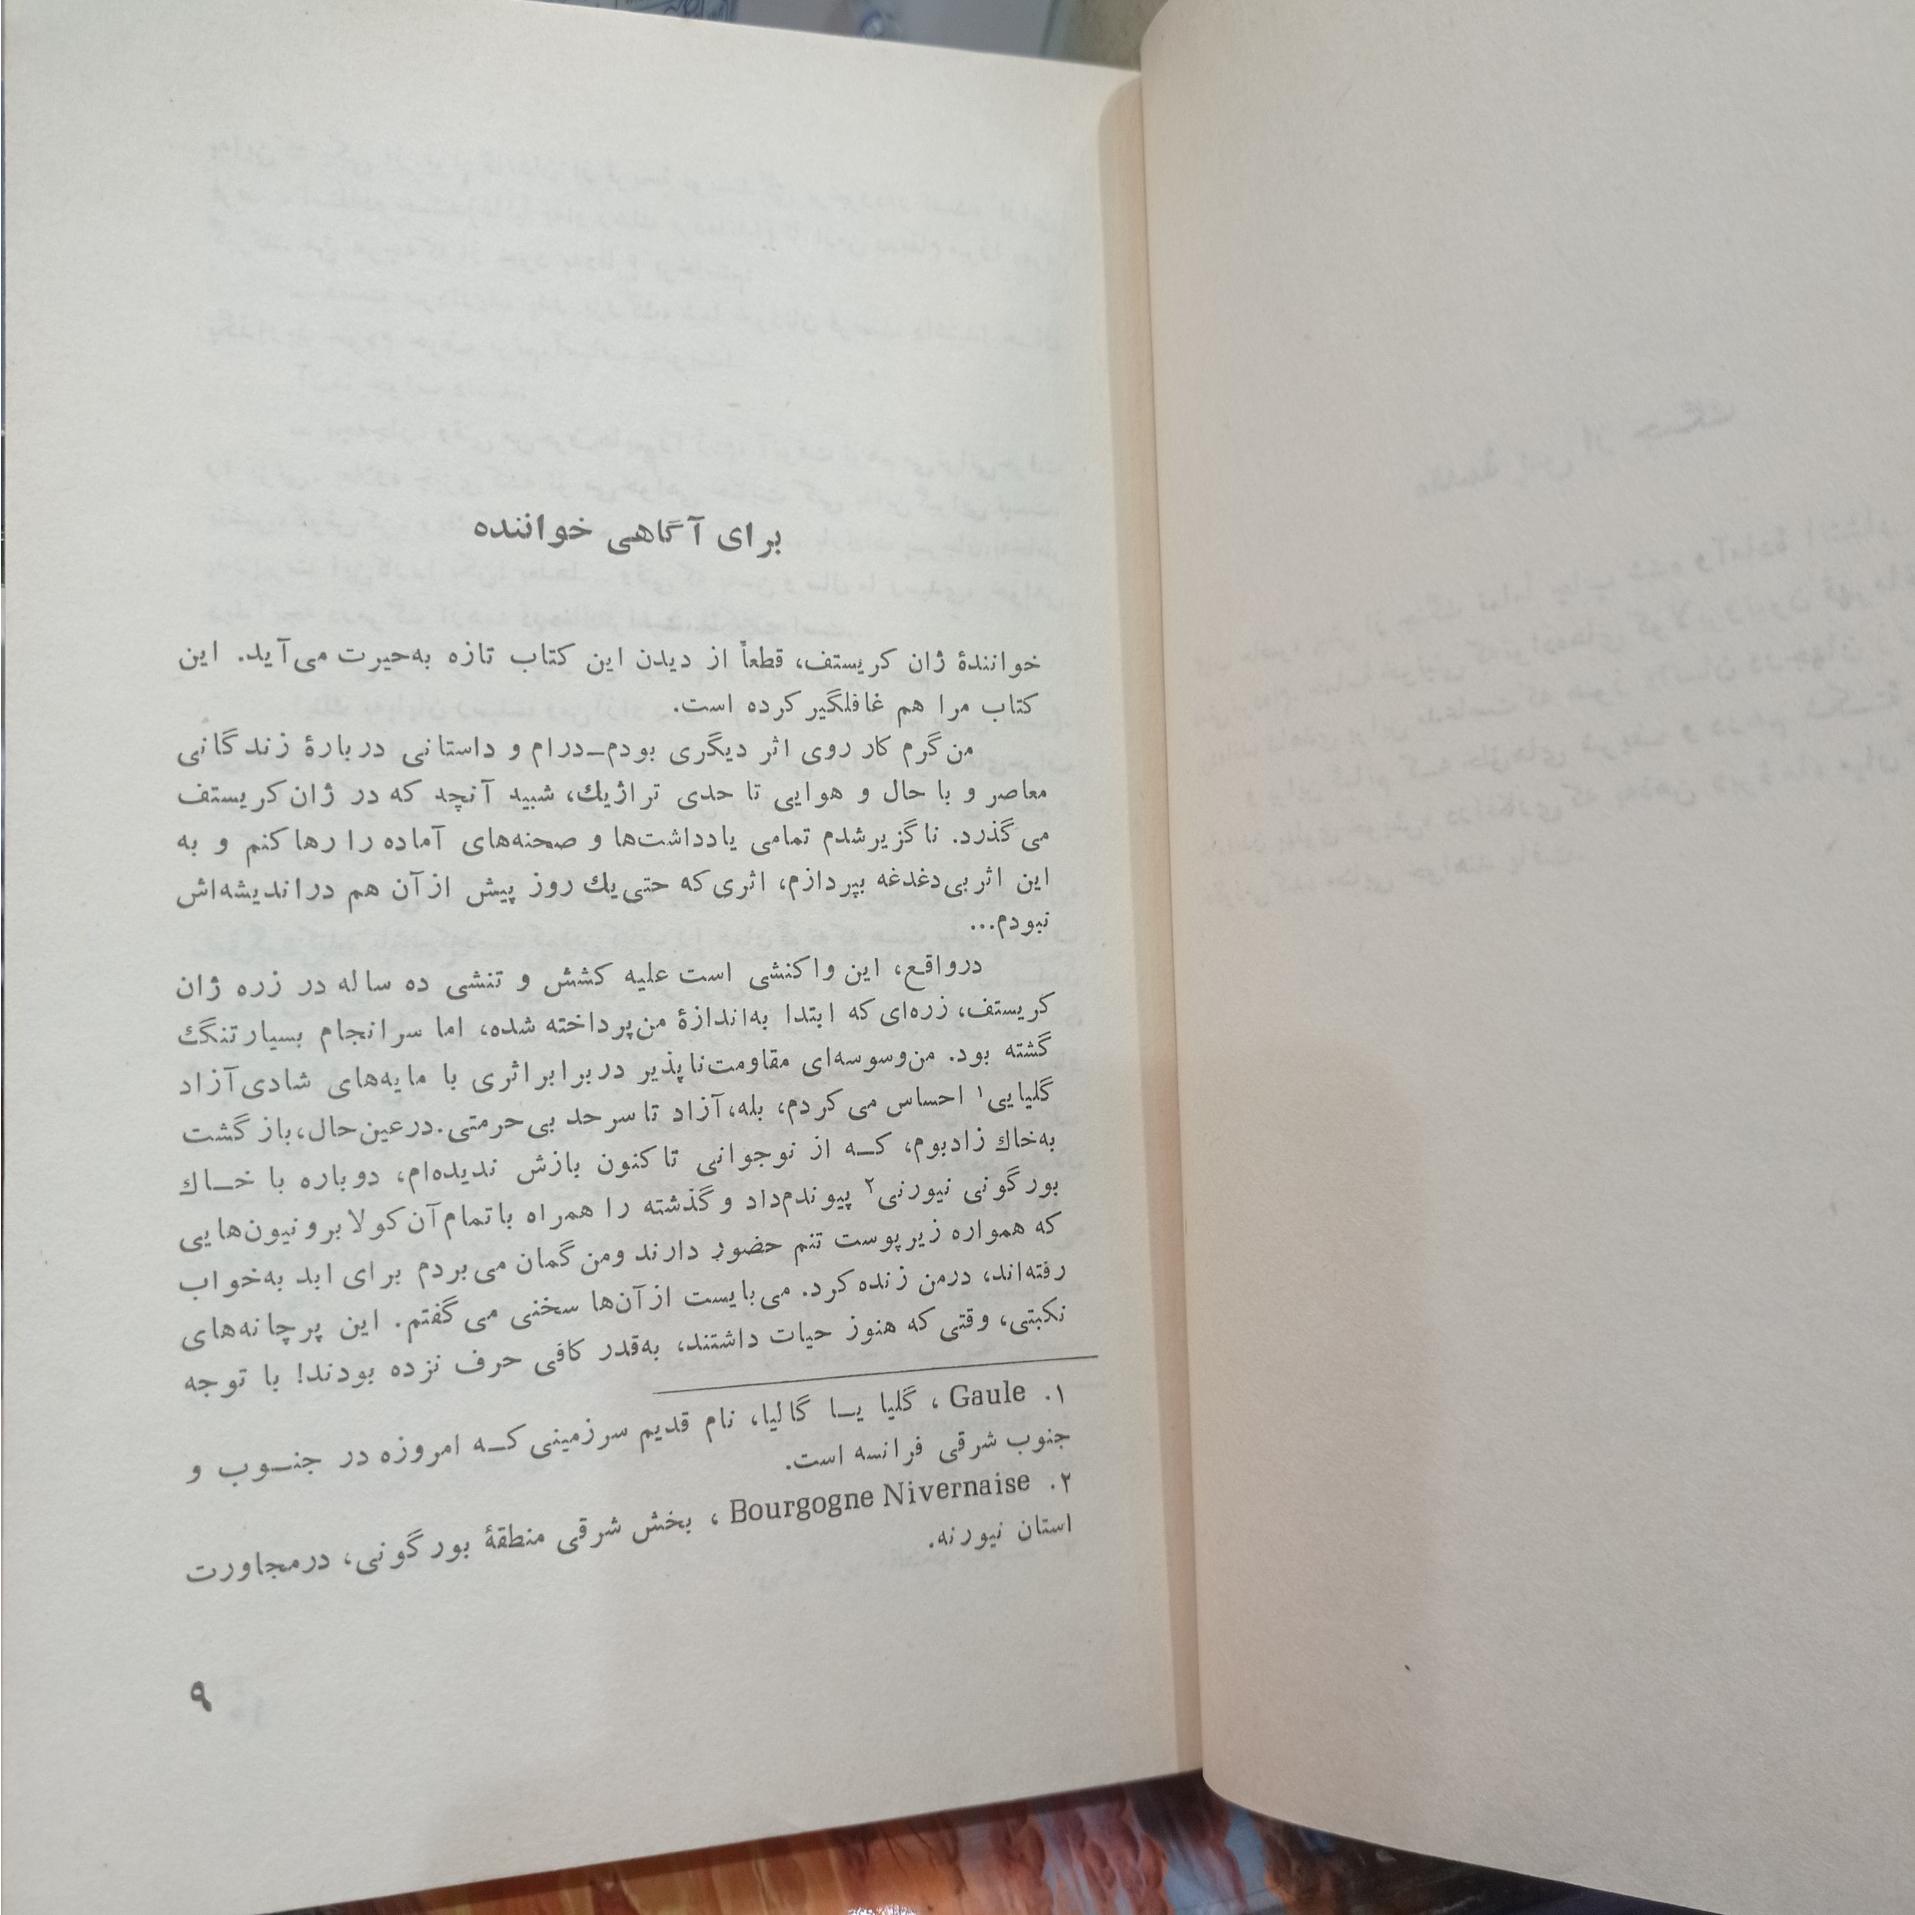 برای آگاهی خواننده
خوانندهٔ ژان کریستف، قطعاً از دیدن این کتاب تازه به‌حیرت می‌آید. این
کتاب مرا هم غافلگیر کرده است.
من گرم کار روی اثر دیگری بودم_درام و داستانی دربارهٔ زندگانی
معاصر و با حال و هوایی تا حدی تراژیك، شبید آنچد که در ژان کریستف
می‌گذرد. ناگزیر شدم تمامی یادداشت‌ها و صحنه‌های آماده را رها کنم و به
این اثر بی‌دغدغه بپردازم، اثری که حتی یك روز پیش از آن هم در اندیشه‌اش
نبودم...
درواقع، این واکنشی است علیه کشش و تنشی ده ساله در زره ژان
کریستف، زره‌ای که ابتدا به‌اندازهٔ من پرداخته شده، اما سرانجام بسیار تنگ
گشته بود. من وسوسه‌ای مقاومت‌ناپذیر در برابر اثری با مایه‌های شادی آزاد
گلیایی۱ احساس می‌کردم، بله، آزاد تا سرحد بی‌حرمتی. در عین حال، بازگشت
به‌خاك زادبوم، کــه از نوجوانی تاکنون بازش ندیده‌ام، دوباره با خــاك
بورگونی نیورنی۲ پیوندم داد و گذشته را همراه با تمام آن کولابرونیون‌هایی
که همواره زیر پوست تنم حضور دارند و من گمان می‌بردم برای ابد به‌خواب
رفته‌اند، در من زنده کرد. می‌بایست از آن‌ها سخنی می‌گفتم. این پرچانه‌های
نکبتی، وقتی که هنوز حیات داشتند، به‌قدر کافی حرف نزده بودند! با توجه
۱. Gaule ، گلیا یــا گالیا، نام قدیم سرزمینی کــه امروزه در جنــوب و
جنوب شرقی فرانسه است.
۲. Bourgogne Nivernaise ، بخش شرقی منطقهٔ بورگونی، در مجاورت
استان نیورنه.
۹